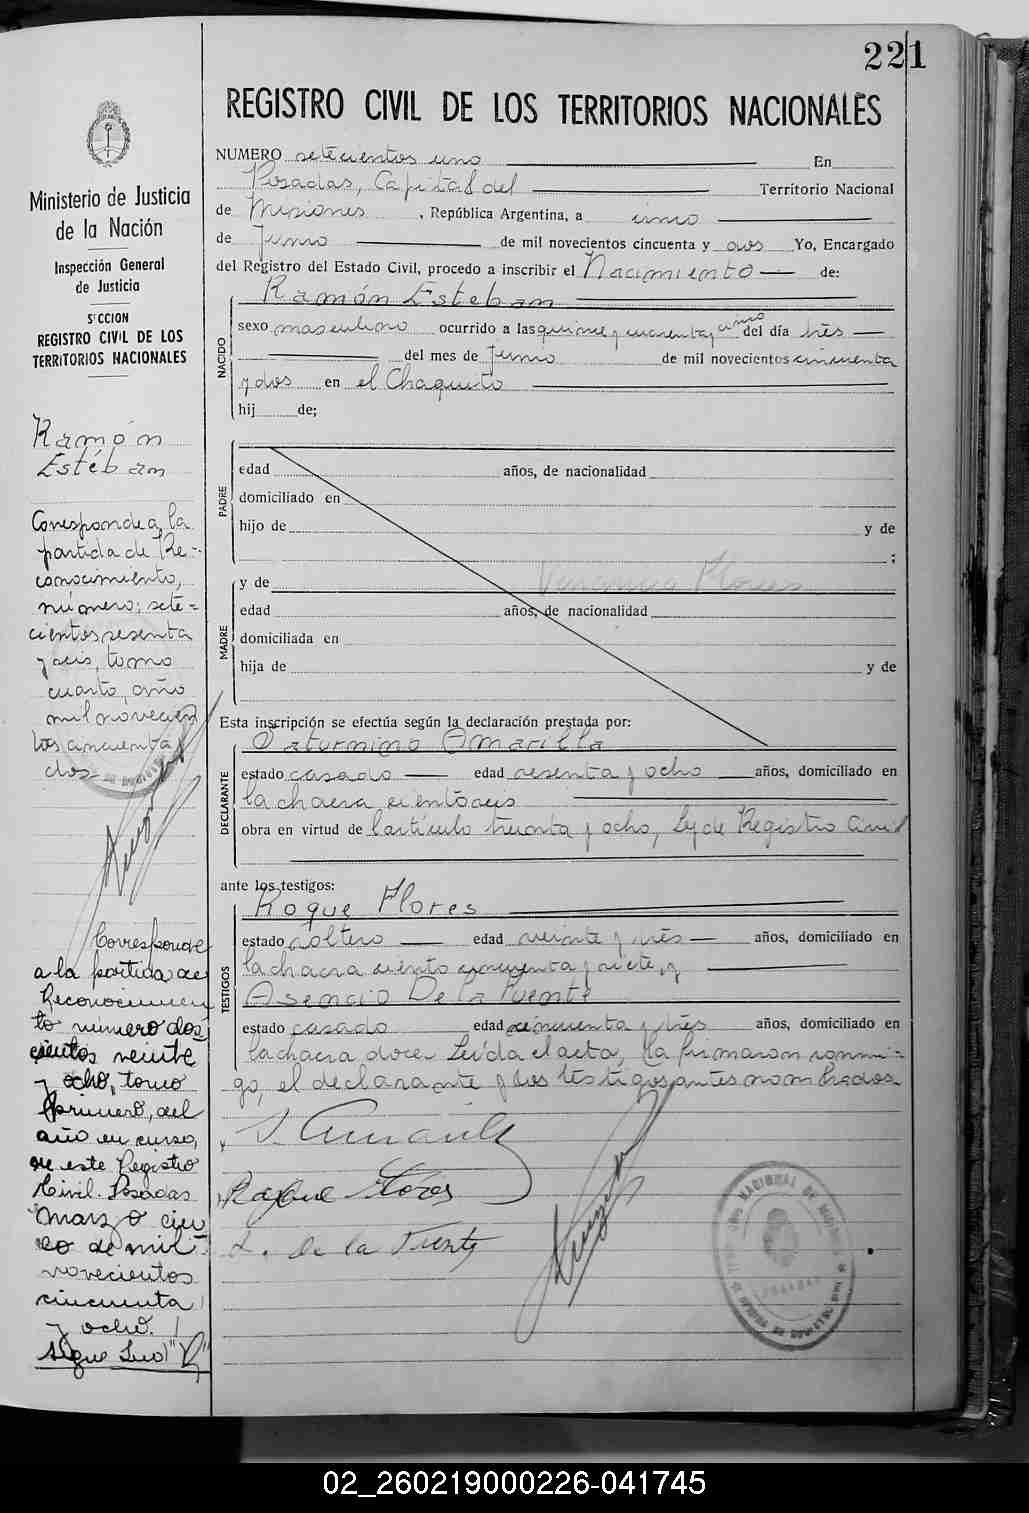 221
REGISTRO CIVIL DE LOS TERRITORIOS NACIONALES
Ministerio de Justicia
de la Nación
Inspección General
de Justicia
SECCION
REGISTRO CIVIL DE LOS
TERRITORIOS NACIONALES
Ramón
Estéban
Corresponde a la
partida de Re-
conocimiento,
número; sete=
cientos sesenta
y seis, tomo
cuarto, año
mil novecien
tos cincuenta
dos
Corresponde
a la partida de
Reconocimien
to número dos
cientos veinte
y ocho, tomo
primero, del
año en curso,
de este Registro
Civil. Posadas
marzo cin
co de mil
novecientos
cincuenta
y ocho.
Sigue
NUMERO setecientos uno En
Posadas, Capital del Territorio Nacional
de Misiones, República Argentina, a cinco
de Junio de mil novecientos cincuenta y dos Yo, Encargado
del Registro del Estado Civil, procedo a inscribir el Nacimiento de:
NACIDO
Ramón Esteban
sexo masculino ocurrido a las quince y cuarenta y cinco del día três
del mes de Junio de mil novecientos cincuenta
y dos en el Chaquito
hij de;
PADRE
edad años, de nacionalidad
domiciliado en
hijo de y de
;
MADRE
y de Flores
edad años, de nacionalidad
domiciliada en
hija de y de
Esta inscripción se efectúa según la declaración prestada por:
DECLARANTE
Saturnino Amarilla
estado casado edad sesenta y ocho años, domiciliado en
la chacra cientoseis
obra en virtud de l'artículo treinta y ocho, Ley de Registro Civil
ante los testigos:
TESTIGOS
Roque Flores
estado soltero edad veinte y três años, domiciliado en
la chacra ciento cincuenta y siete, y
Asencio De la Puente
estado casado edad cincuenta y três años, domiciliado en
la chacra doce. Leída el acta, la firmaron conmi-
go, el declarante y los testigos antes nombrados
S. Amarilla
Roque Flores
A. de la Puente
02_260219000226-041745